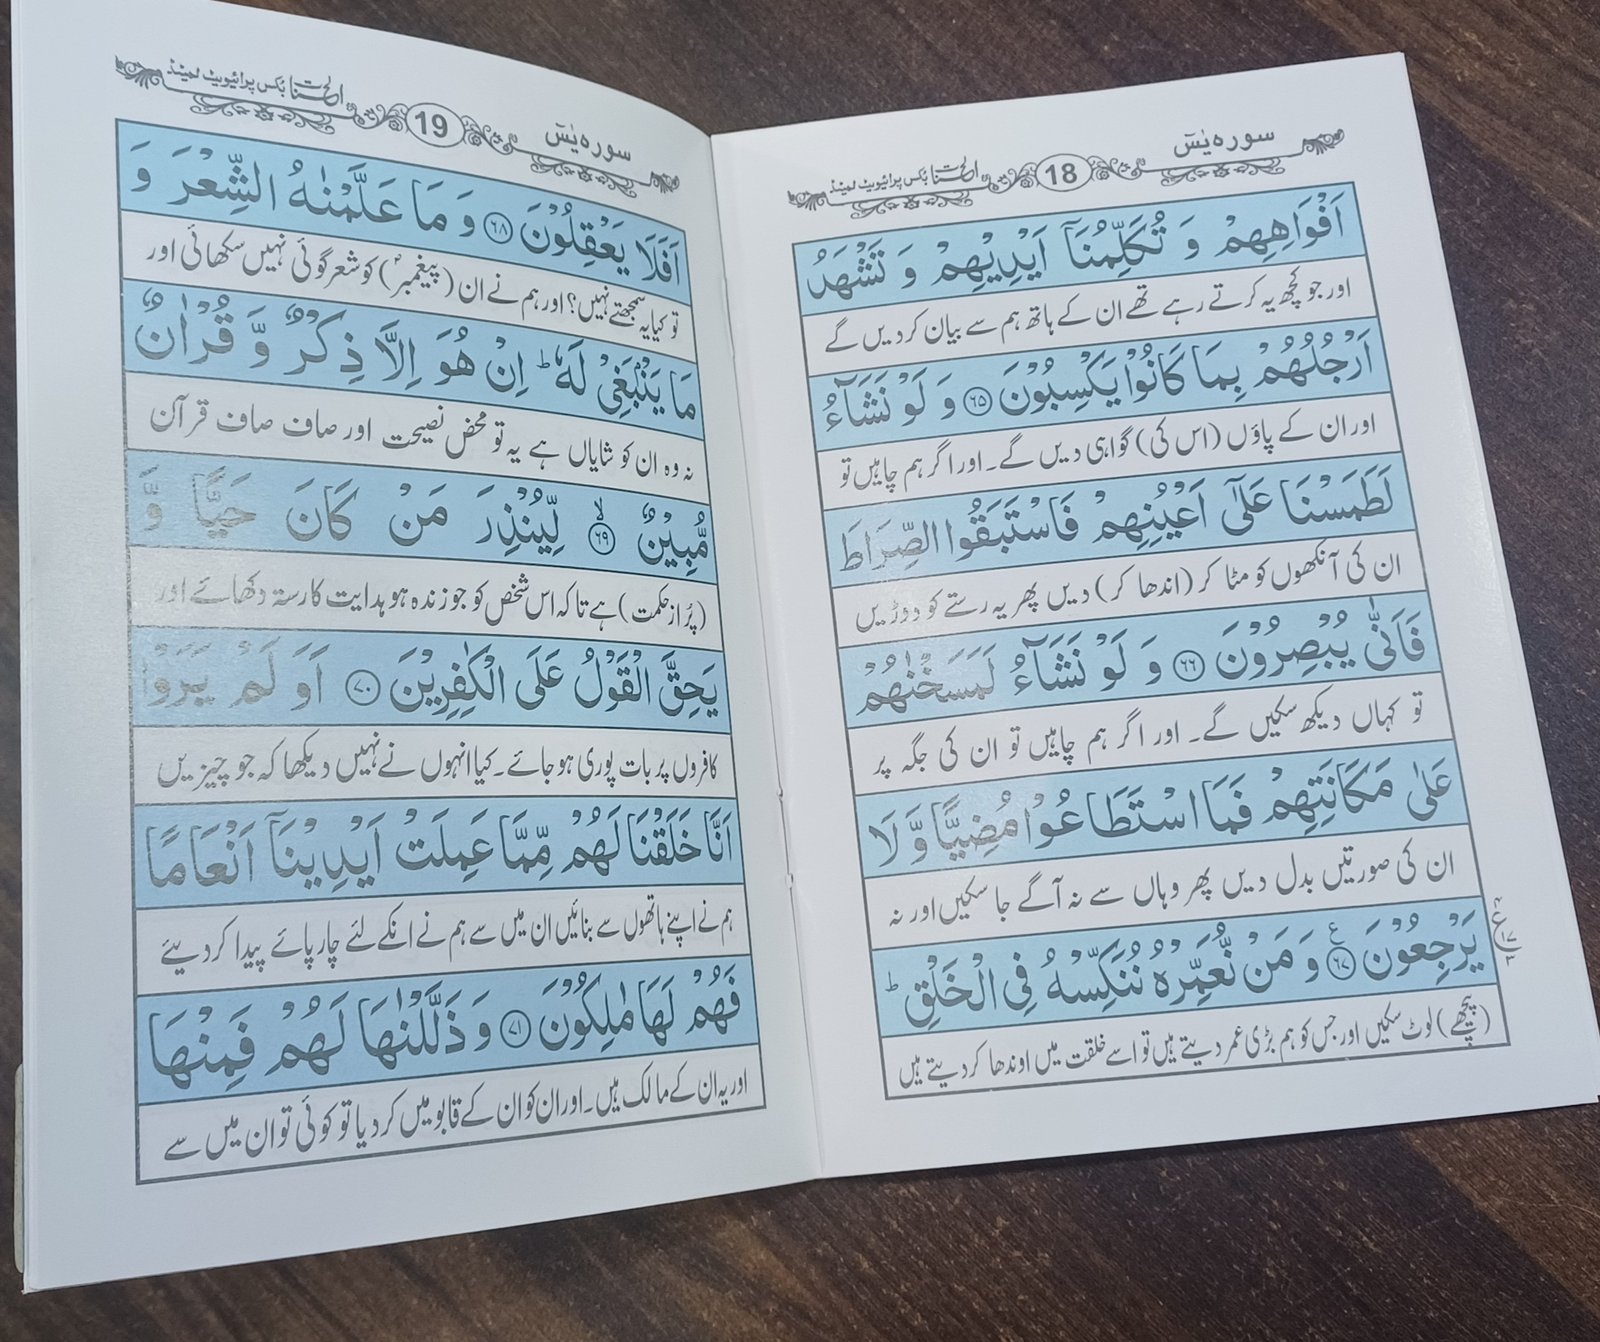 سورہ یٰسٓ
18
الحسنات بکس پرائیویٹ لمیٹڈ
اَفْوَاهِهِمْ وَ تُكَلِّمُنَاۤ اَيْدِيْهِمْ وَ تَشْهَدُ
اور جو کچھ یہ کرتے رہے تھے ان کے ہاتھ ہم سے بیان کر دیں گے
اَرْجُلُهُمْ بِمَا كَانُوْا يَكْسِبُوْنَ ۶۵ وَ لَوْ نَشَآءُ
اور ان کے پاؤں (اس کی) گواہی دیں گے۔ اور اگر ہم چاہیں تو
لَطَمَسْنَا عَلٰۤى اَعْيُنِهِمْ فَاسْتَبَقُوا الصِّرَاطَ
ان کی آنکھوں کو مٹا کر (اندھا کر) دیں پھر یہ رستے کو دوڑیں
فَاَنّٰى يُبْصِرُوْنَ ۶۶ وَ لَوْ نَشَآءُ لَمَسَخْنٰهُمْ
تو کہاں دیکھ سکیں گے۔ اور اگر ہم چاہیں تو ان کی جگہ پر
عَلٰى مَكَانَتِهِمْ فَمَا اسْتَطَاعُوْا مُضِيًّا وَّ لَا
ان کی صورتیں بدل دیں پھر وہاں سے نہ آگے جا سکیں اور نہ
يَرْجِعُوْنَ ۶۷ ع وَ مَنْ نُّعَمِّرْهُ نُنَكِّسْهُ فِى الْخَلْقِ ؕ
(پیچھے) لوٹ سکیں اور جس کو ہم بڑی عمر دیتے ہیں تو اسے خلقت میں اوندھا کر دیتے ہیں
سورہ یٰسٓ
19
الحسنات بکس پرائیویٹ لمیٹڈ
اَفَلَا يَعْقِلُوْنَ ۶۸ وَ مَا عَلَّمْنٰهُ الشِّعْرَ وَ
تو کیا یہ سمجھتے نہیں؟ اور ہم نے ان (پیغمبرؐ) کو شعر گوئی نہیں سکھائی اور
مَا يَنْۢبَغِىْ لَهٗ ؕ اِنْ هُوَ اِلَّا ذِكْرٌ وَّ قُرْاٰنٌ
نہ وہ ان کو شایاں ہے یہ تو محض نصیحت اور صاف صاف قرآن
مُّبِيْنٌ ۶۹ ۙ لِّيُنْذِرَ مَنْ كَانَ حَيًّا وَّ
(پُر از حکمت) ہے تاکہ اس شخص کو جو زندہ ہو ہدایت کا رستہ دکھائے اور
يَحِقَّ الْقَوْلُ عَلَى الْكٰفِرِيْنَ ۷۰ اَوَ لَمْ يَرَوْا
کافروں پر بات پوری ہو جائے۔ کیا انہوں نے نہیں دیکھا کہ جو چیزیں
اَنَّا خَلَقْنَا لَهُمْ مِّمَّا عَمِلَتْ اَيْدِيْنَاۤ اَنْعَامًا
ہم نے اپنے ہاتھوں سے بنائیں ان میں سے ہم نے انکے لئے چارپائے پیدا کر دیئے
فَهُمْ لَهَا مٰلِكُوْنَ ۷۱ وَ ذَلَّلْنٰهَا لَهُمْ فَمِنْهَا
اور یہ ان کے مالک ہیں۔ اور ان کو ان کے قابو میں کر دیا تو کوئی تو ان میں سے